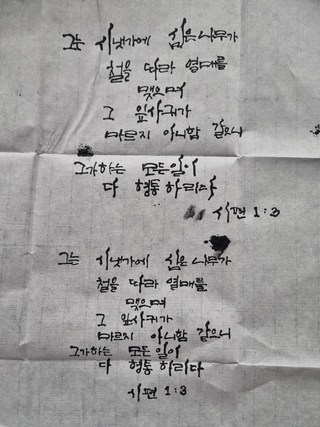 그는 시냇가에 심은 나무가
철을 따라 열매를
맺으며
그 잎사귀가
마르지 아니함 같으니
그가하는 모든일이
다 형통 하리다
시편 1:3
그는 시냇가에 심은 나무가
철을 따라 열매를
맺으며
그 잎사귀가
마르지 아니함 같으니
그가하는 모든 일이
다 형통 하리다
시편 1:3